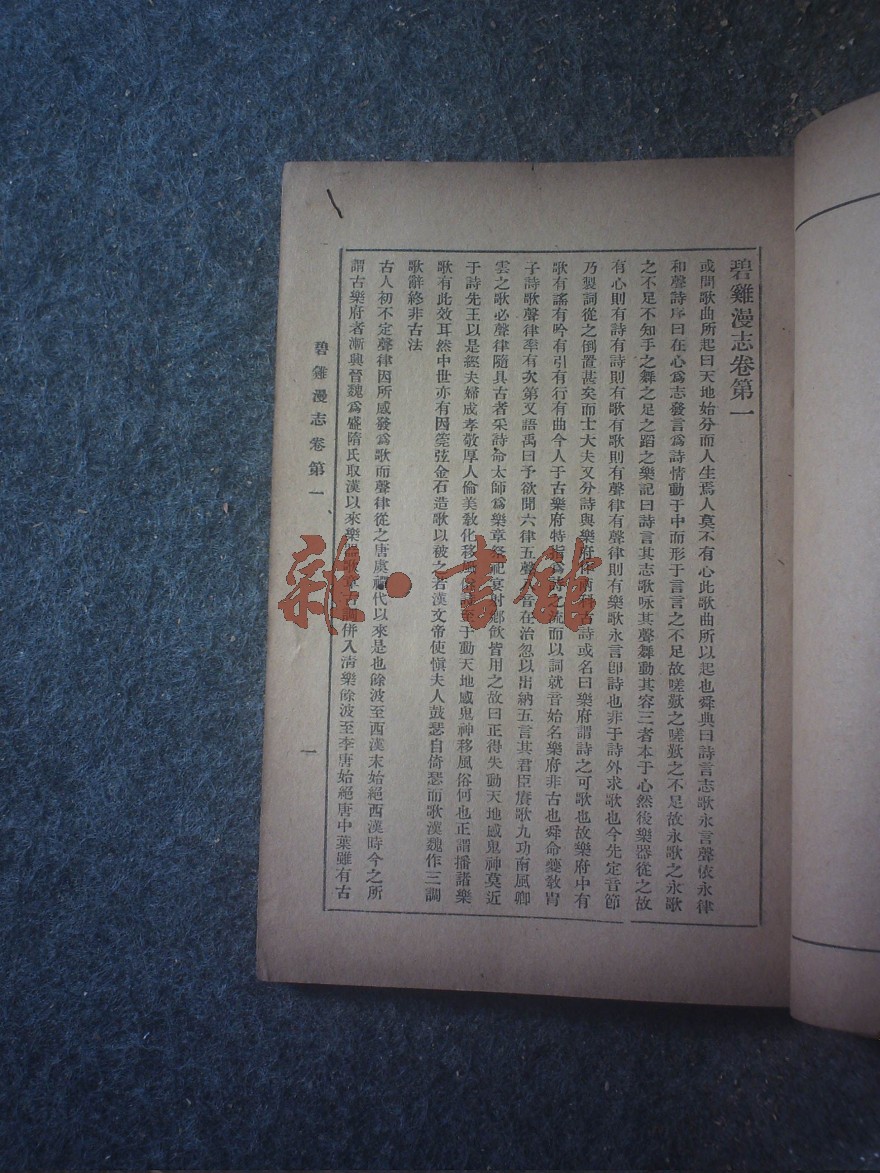 碧雞漫志卷第一
或問歌曲所起曰天地始分而人生焉人莫不有心此歌曲所以起也舜典曰詩言志歌永言聲依永律
和聲詩序曰在心爲志發言爲詩情動于中而形于言言之不足故嗟歎之嗟歎之不足故永歌之永歌
之不足不知手之舞之足之蹈之樂記曰詩言其志歌咏其聲舞動其容三者本于心然後樂器從之故
有心則有詩有詩則有歌有歌則有聲律有聲律則有樂歌永言卽詩也非于詩外求歌也今先定音節
乃製詞從之倒置甚矣而士大夫又分詩與樂府作兩科古詩或名曰樂府謂詩之可歌也故樂府中有
歌有謠有吟有引有行有曲今人于古樂府特指爲詩之流而以詞就音始名樂府非古也舜命夔敎胄
子詩歌聲律率有次第又語禹曰予欲聞六律五聲八音在治忽以出納五言其君臣賡歌九功南風卿
雲之歌必聲律隨具古者采詩命太師爲樂章祭祀宴射鄉飮皆用之故曰正得失動天地感鬼神莫近
于詩先王以是經夫婦成孝敬厚人倫美敎化移風俗詩至于動天地感鬼神移風俗何也正謂播諸樂
歌有此效耳然中世亦有因筦弦金石造歌以被之若漢文帝使愼夫人鼓瑟自倚瑟而歌漢魏作三調
歌辭終非古法
古人初不定聲律因所感發爲歌而聲律從之唐虞禪代以來是也餘波至西漢末始絕西漢時今之所
謂古樂府者漸興晉魏爲盛隋氏取漢以來樂器歌章古調併入淸樂餘波至李唐始絕唐中葉雖有古
碧雞漫志卷第一
一
雜·書館